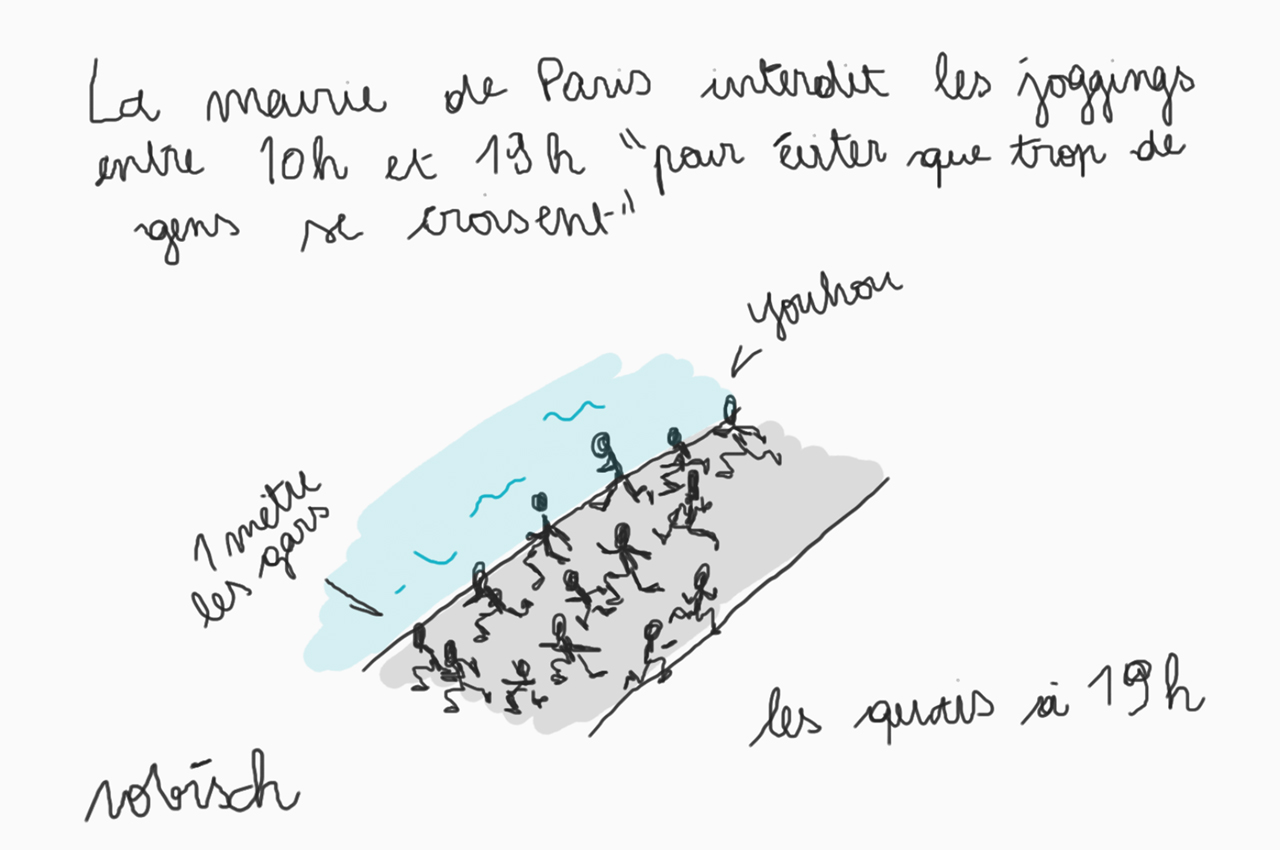 La mairie de Paris interdit les joggings
entre 10h et 19h "pour éviter que trop de
gens se croisent"
youhou
1 mètre
les gars
les quais à 19h
robisch